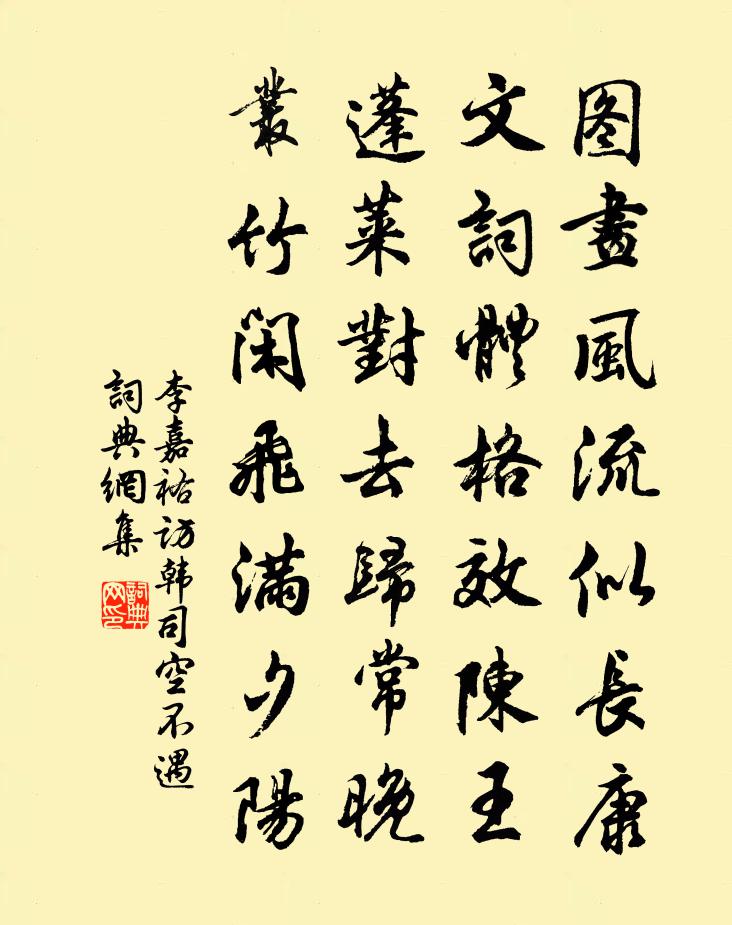 图畫風流似長康
文詞體格效陳王
蓬萊對去歸常晚
叢竹閑飛滿夕陽
李嘉祐访韩司空不遇
詞典網集
詞典网印